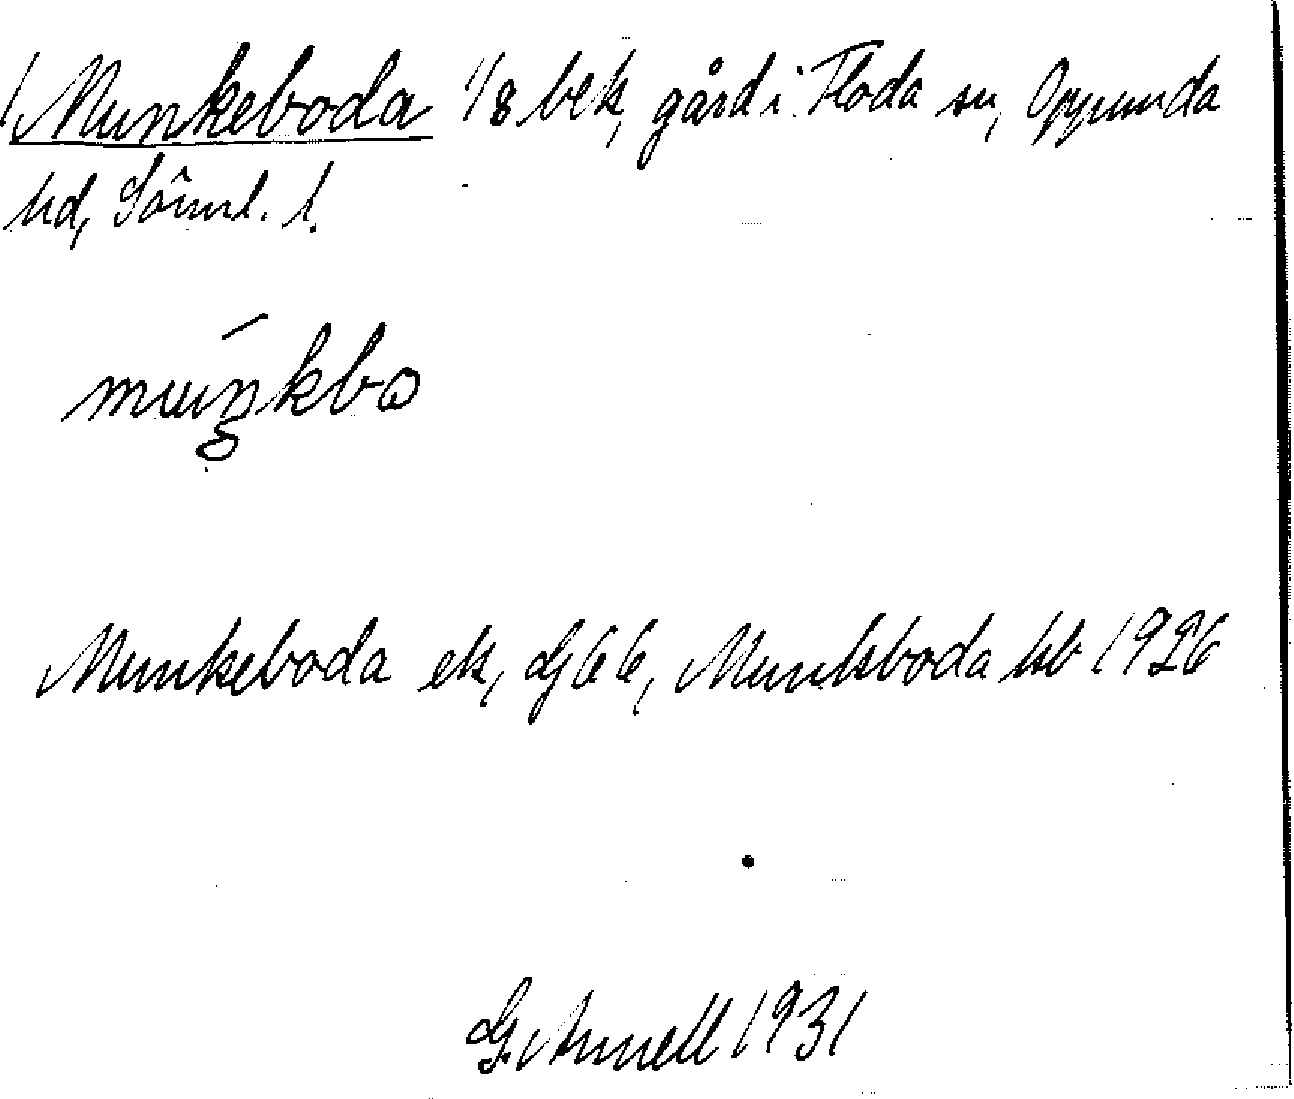 Munkeboda 1/8 bek, gård i Floda sn, Oppunda
hd, Söml. l.
munkbo
Munkeboda ek, Munkboda hb 1926
G. Arnell 1931